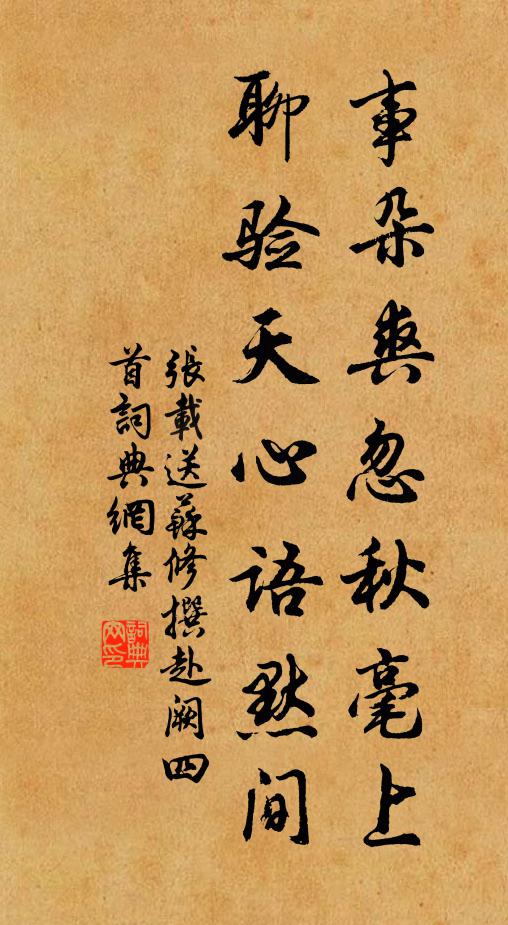 事朵爽忽秋毫上
聊验天心语黙间
張載送蘇修撰赴闕四
首詞典網集
詞典网印